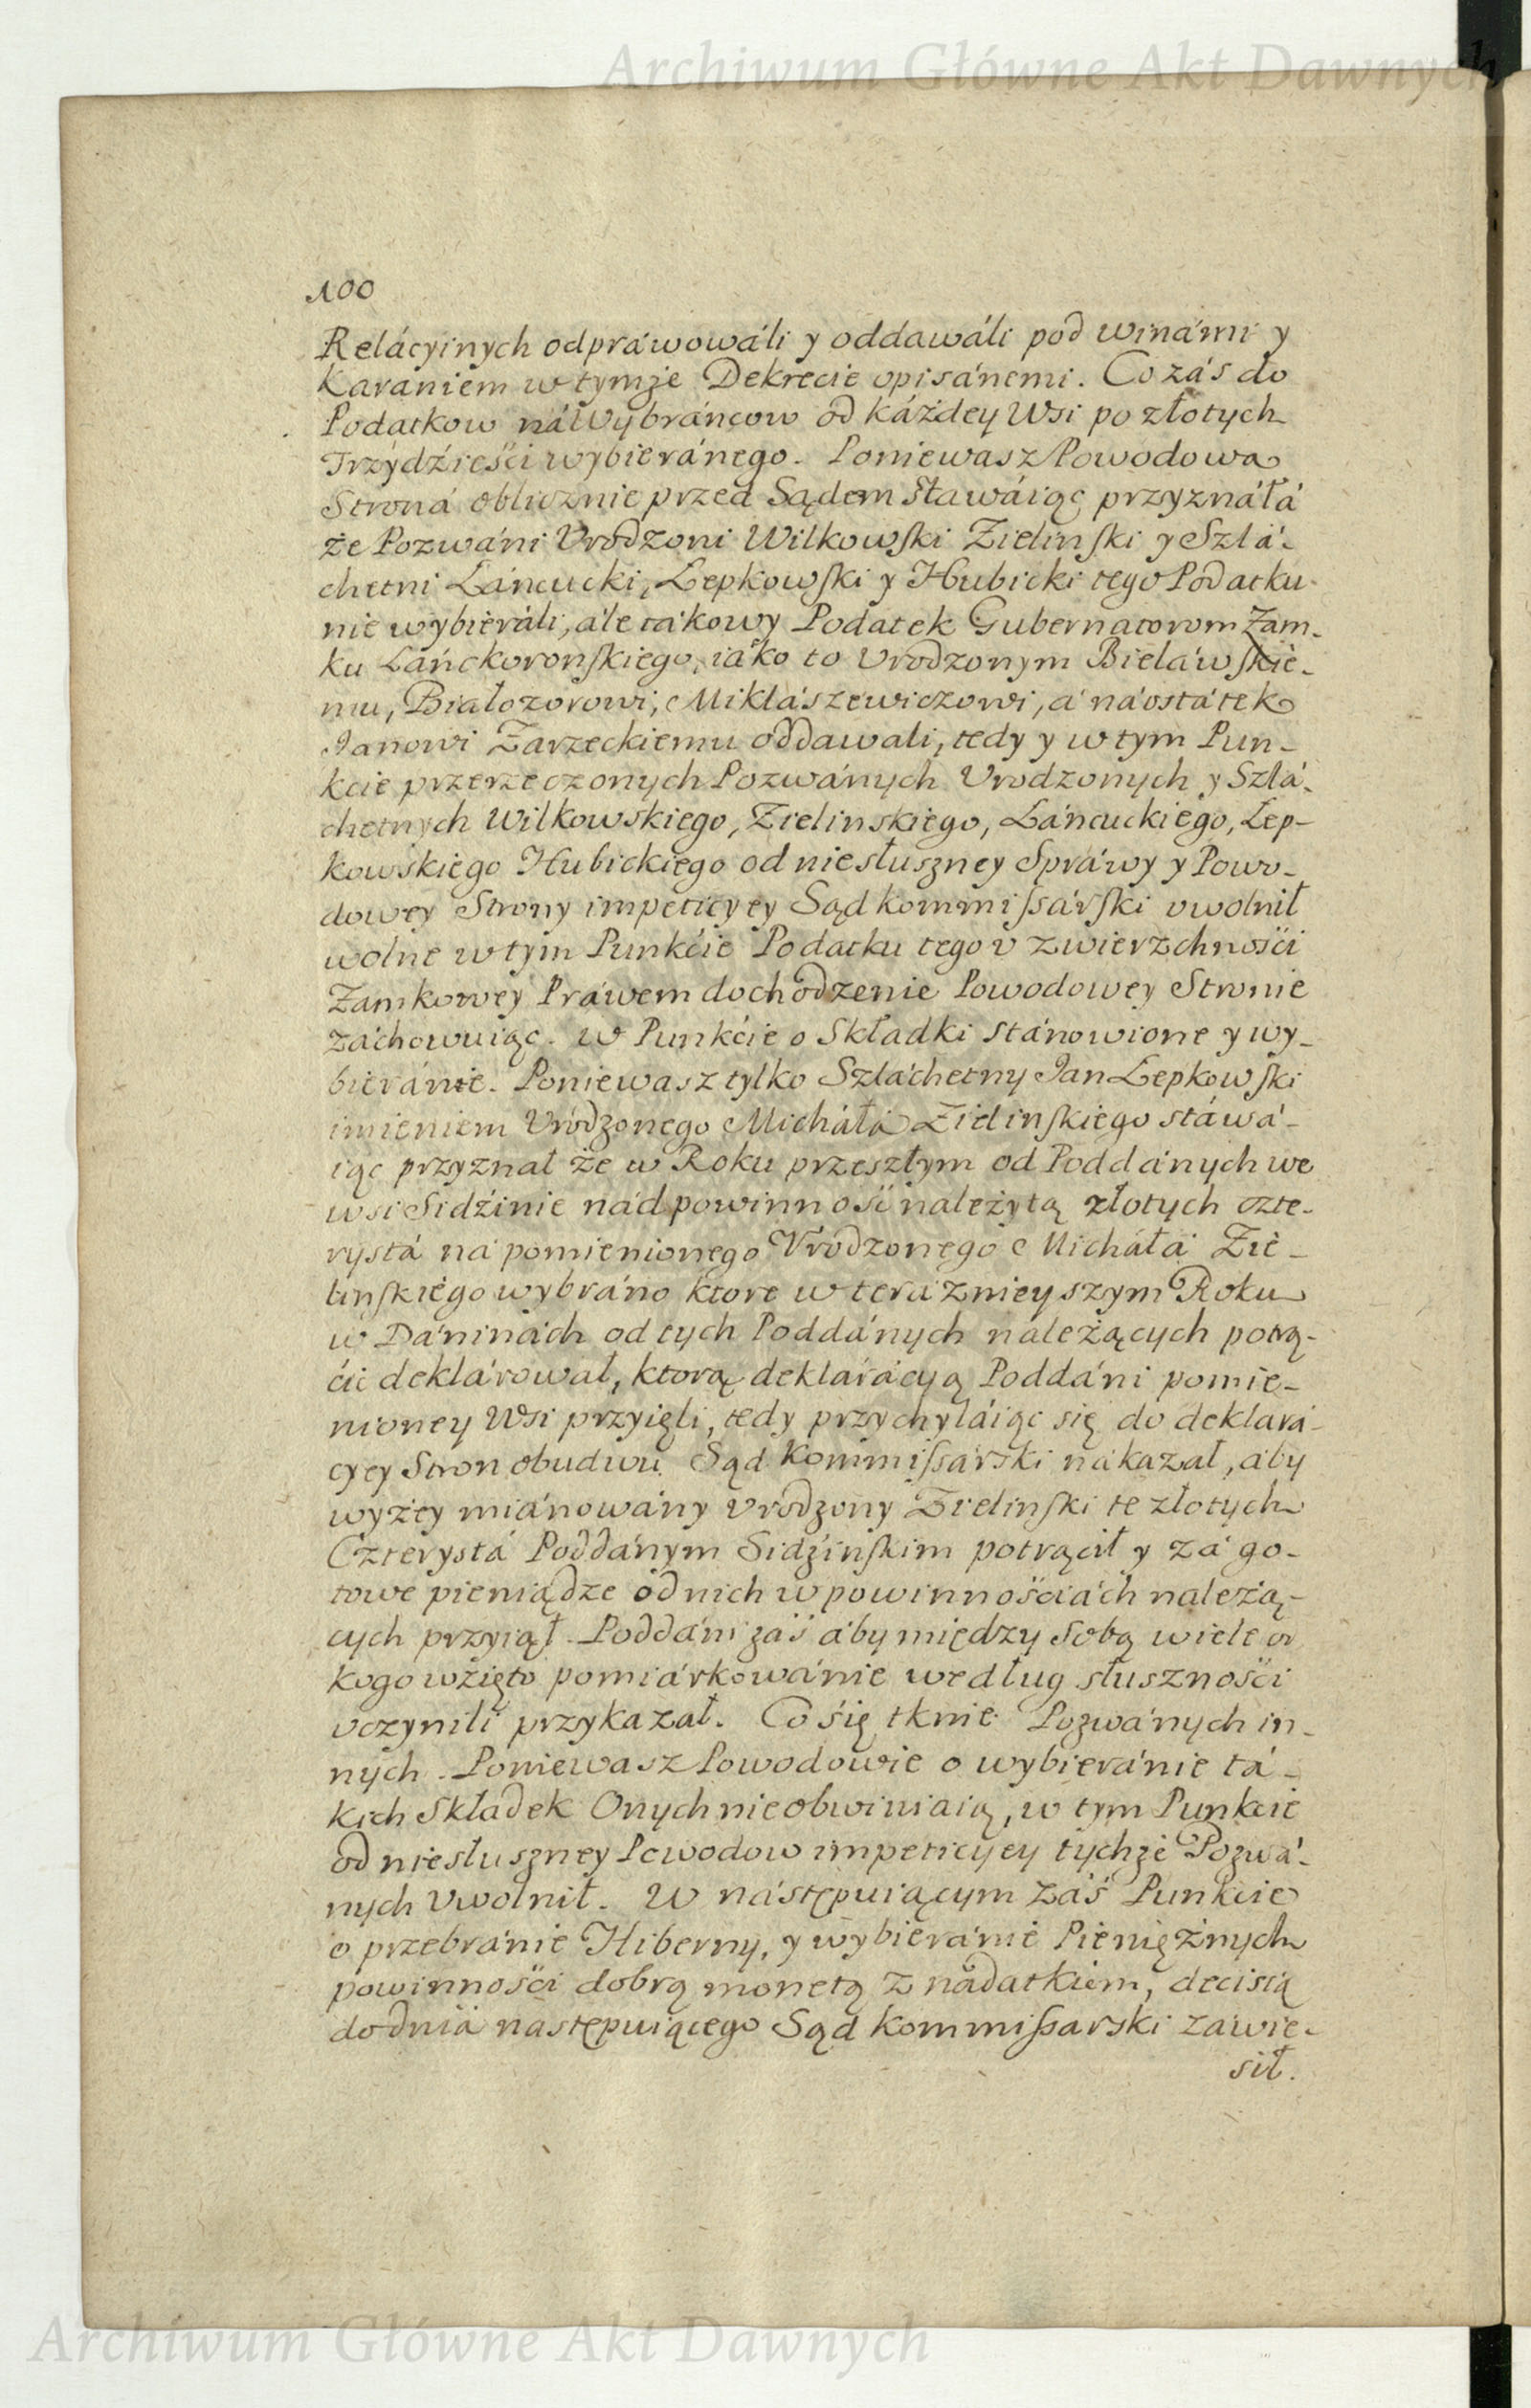 Archiwum Główne Akt Dawnych
100
Relácyinych odpráwowáli y oddawáli pod winámi y
Karaniem w tymże Dekrecie opisánemi. Co zás do
Podatkow ná Wybráncow od káżdey Wsi po złotych
Trzydźieśći wybieránego. Poniewasz Powodowa
Stroná oblicznie przed Sądem stawáiąc przyznáłá
że Pozwáni Vrodzoni Wilkowski Zielinski y Szlá-
chetni Láncucki, Lepkowski y Hubicki tego Podatku
nie wybieráli, ále tákowy Podatek Gubernatorom Zam-
ku Lánckoronskiego, iáko to Vrodzonym Bieláwskie-
mu, Białozorowi, Miklászewiczowi, á náostátek
Janowi Zarzeckiemu oddawali, tedy y w tym Pun-
kcie przerzeczonych Pozwánych Vrodzonych y Szlá-
chetnych Wilkowskiego, Zielinskiego, Láncuckiego, Lep-
kowskiego Hubickiego od niesłuszney Spráwy y Powo-
dowey Strony impeticyey Sąd kommissárski vwolnił
wolne w tym Punkćie Podatku tego v zwierzchnośći
Zamkowey Práwem dochodzenie Powodowey Stronie
záchowuiąc. w Punkćie o Składki stánowione y wy-
bieránie. Poniewasz tylko Szláchetny Jan Lepkowski
imieniem Vrodzonego Micháłá Zielinskiego stáwá-
iąc przyznał że w Roku przeszłym od Poddánych we
wsi Sidźinie nád powinność należytą złotych czte-
rystá ná pomienionego Vrodzonego Micháłá Zie-
linskiego wybráno ktore w teráznieyszym Roku
w Dáninách od tych Poddánych náleżących potrą-
ćić deklárował, ktorą deklarácyą Poddáni pomie-
nioney Wsi przyięli, tedy przychyláiąc się do deklará-
cyey Stron obudwu Sąd kommissarski nákazał, aby
wyżey miánowány Vrodzony Zielinski te złotych
Czterystá Poddánym Sidzinskim potrącił y zá go-
towe pieniądze od nich w powinnośćiách należą-
cych przyiął. Poddáni záś áby między sobą wiele od
kogo wźięto pomiárkowánie według słusznośći
vczynili przykazał. Co się tknie Pozwánych in-
nych. Poniewasz Powodowie o wybieránie tá-
kich Składek Onych nie obwiniaią, w tym Punkcie
od niesłuszney Powodow impeticyey tychże Pozwá-
nych Vwolnił. W nástępuiącym záś Punkcie
o przebránie Hiberny, y wybieránie Pieniężnych
powinnośći dobrą monetą z nádatkiem, decisią
do dniá nástępuiącego Sąd kommissarski záwie-
sił.
Archiwum Główne Akt Dawnych